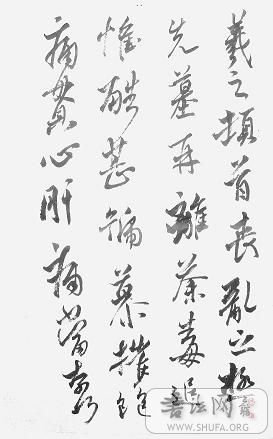 羲之頓首喪亂之極
先墓再離荼毒追
惟酷甚號慕摧絕
痛貫心肝痛當奈何
書法网
WWW.SHUFA.ORG